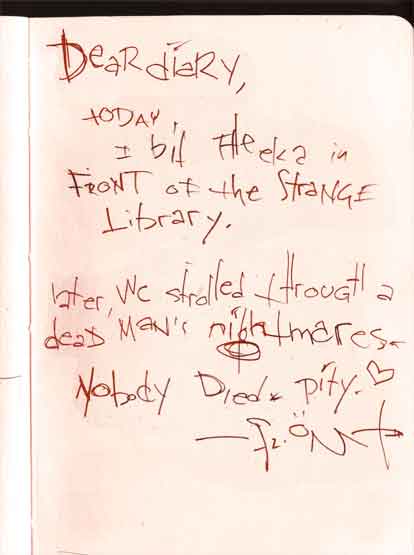 Dear diary,
today,
I bit Fleeka in
FRONT of the STRANGE
Library.
later, we strolled through a
dead man's nightmares.
Nobody Died. pity. ♡